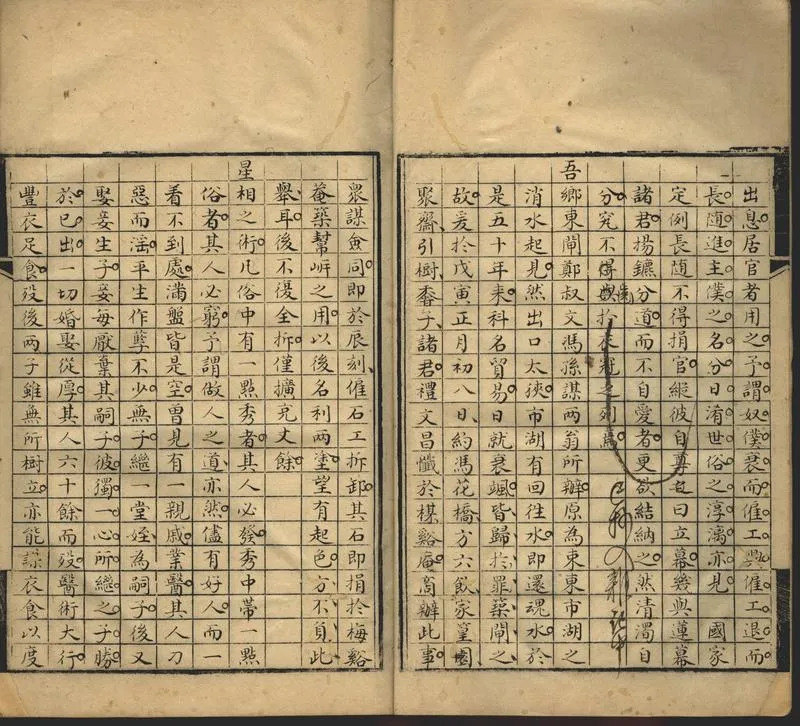 出息居官者用之予謂奴僕衰而僱工興僱工退而
長随進主僕之名分日淆世俗之淳漓亦見 國家
定例長随不得捐官縱彼自尊也曰立幕幾與蓮幕
諸君揚鑣分道而不自愛者更欲結納之然清濁自
分究不得與於衣冠之列焉
吾鄉東閘鄭叔文馮孫謀兩翁所辦原為東東市湖之
消水起見然出口太狹市湖有回往水即還魂水於
是五十年来科名貿易日就衰颯皆歸於罪築閘之
故爰於戊寅正月初八日約馮花橋方六飲家篁園
聚齋引樹黍子諸君禮文昌懺於楳谿庵商辦此事
衆謀僉同即於辰刻僱石工拆卸其石即捐於梅谿
菴築幫岍之用以後名利兩塗望有起色方不負此
舉耳後不復全拆僅擴充丈餘
星相之術凡俗中有一點秀者其人必發秀中帶一點
俗者其人必窮予謂做人之道亦然儘有好人而一
看不到處滿盤皆是空曾見有一親戚業醫其人刀
惡而淫平生作孽不少無子繼一堂姪為嗣子後又
娶妾生子妾每厭棄其嗣子彼獨一心所繼之子勝
於己出一切婚娶從厚其人六十餘而殁醫術大行
豐衣足食殁後兩子雖無所樹立亦能謀衣食以度